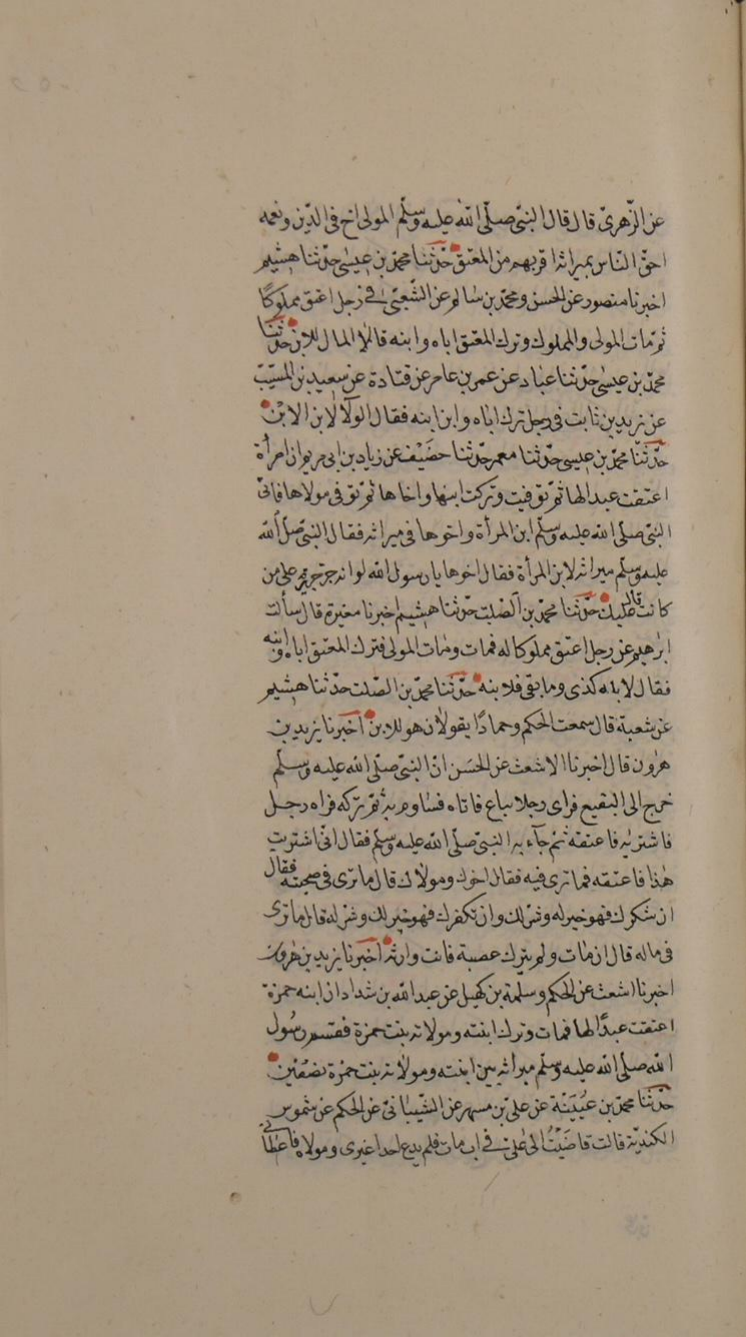 عن الزّهريّ قال قال النبيّ صلّى الله عليه وسلّم المولى اخ في الدّين ونعمه
احقّ النّاس بميراثه اقربهم من المعتق حدّثنا محمّد بن عيسى حدّثنا هشيم
اخبرنا منصور عن الحسن ومحمّد بن سالم عن الشّعبيّ في رجل اعتق مملوكًا
ثمّ مات المولى والمملوك وترك المعتق اباه وابنه قالا المال للابن حدّثنا
محمّد بن عيسى حدّثنا عبّاد عن عمر بن عامر عن قتادة عن سعيد بن المسيّب
عن زيد بن ثابت في رجل ترك اباه وابن ابنه فقال الولآء لابن الابن
حدّثنا محمّد بن عيسى حدّثنا معمر حدّثنا خصيف عن زياد بن ابي مريم ان امرأة
اعتقت عبدا لها ثمّ توفيت وتركت ابنها واخاها ثمّ توفي مولاها فاتى
النبيّ صلى الله عليه وسلّم ابن المرأة واخوها في ميراثه فقال النبيّ صلّى الله
عليه وسلّم ميراثه لابن المرأة فقال اخوها يا رسول الله لو انه جرّ جريرة على من
كانت قال عليك حدّثنا محمّد بن الصّلت حدّثنا هشيم اخبرنا مغيرة قال سألت
ابرهيم عن رجل اعتق مملوكا له فمات ومات المولى فترك المعتق اباه وابنه
فقال لابيه كذى وما بقي فلابنه حدّثنا محمّد بن الصّلت حدّثنا هشيم
عن شعبة قال سمعت الحكم وحمادًا يقولان هو للابن اخبرنا يزيد بن
هرون قال اخبرنا الاشعث عن الحسن انّ النبيّ صلّى الله عليه وسلّم
خرج الى البقيع فراى رجلا يباع فاتاه فساوم به ثمّ تركه فراه رجل
فاشتريه فاعتقه ثم جآء به النبيّ صلّى الله عليه وسلّم فقال انّي اشتريت
هذا فاعتقه فما ترى فيه فقال اخوك ومولاك قال ما ترى في صحبته فقال
ان شكرك فهو خير له وشرّ لك وان تكفرك فهو خير لك وشرّ له قال ما ترى
في ماله قال ان مات ولم يترك عصبة فانت وارثه اخبرنا يزيد بن هرون
اخبرنا اشعث عن الحكم وسلمة بن كهيل عن عبد الله بن شداد ان ابنه حمزة
اعتقت عبدًا لها فمات وترك ابنته ومولاته بنت حمزة فقسم رسول
الله صلى الله عليه وسلّم ميراثه بين ابنته ومولاته بنت حمزة نصفين
حدّثنا محمّد بن عيينة عن علي بن مسهر عن الشّيبانيّ عن الحكم عن شموس
الكنديّة قالت قاضيت الى عليّ في اب مات فلم يدع احدا غيري ومولاه فاعطاني